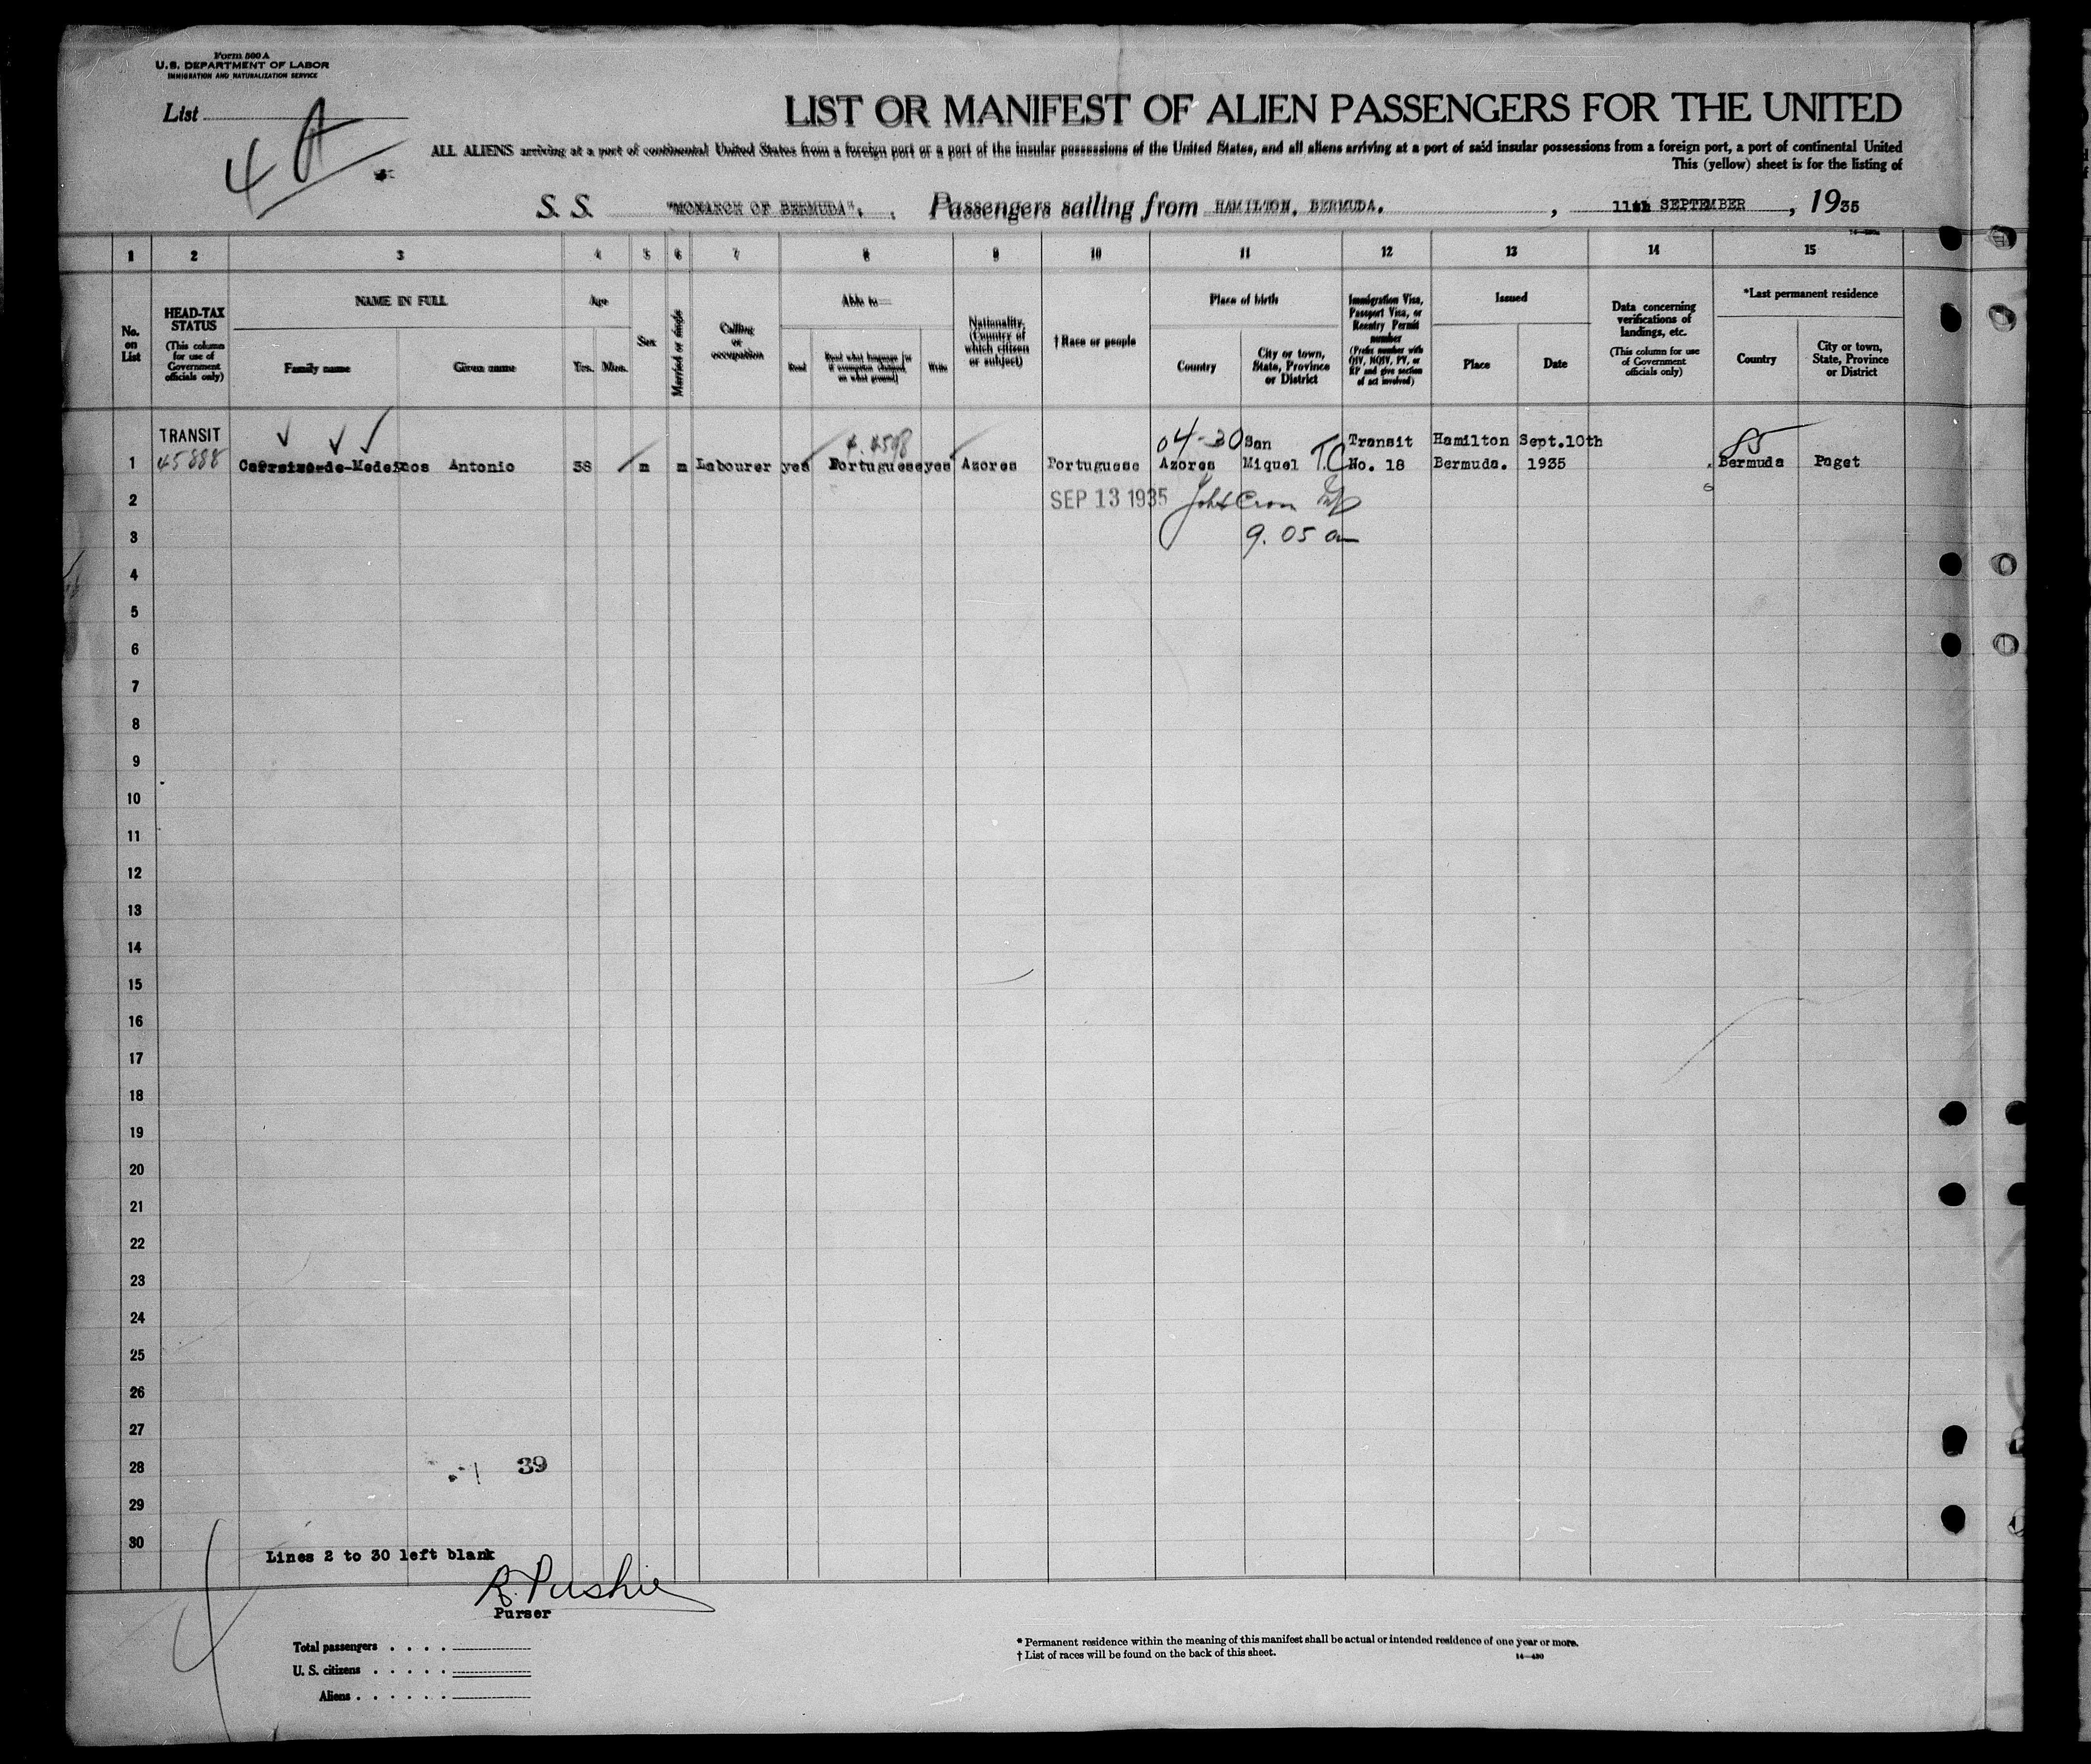 Form 500 A
U. S. DEPARTMENT OF LABOR
IMMIGRATION AND NATURALIZATION SERVICE
List
4A
LIST OR MANIFEST OF ALIEN PASSENGERS FOR THE UNITED
ALL ALIENS arriving at a port of continental United States from a foreign port or a port of the insular possessions of the United States, and all aliens arriving at a port of said insular possessions from a foreign port, a port of continental United
This (yellow) sheet is for the listing of
S. S. "MONARCH OF BERMUDA". Passengers sailing from HAMILTON, BERMUDA. , 11th SEPTEMBER , 1935
1 2 3 4 5 6 7 8 9 10 11 12 13 14 15
No. on List
HEAD-TAX STATUS (This column for use of Government officials only)
NAME IN FULL
Family name
Given name
Age
Yrs. Mos.
Sex
Married or single
Calling or occupation
Able to—
Read
Read what language [or if exemption claimed, on what ground]
Write
Nationality. (Country of which citizen or subject)
† Race or people
Place of birth
Country
City or town, State, Province or District
Immigration Visa, Passport Visa, or Reentry Permit number (Prefix number with QIV, NQIV, PV, or RP and give section of act involved)
Issued
Place
Date
Data concerning verifications of landings, etc. (This column for use of Government officials only)
*Last permanent residence
Country
City or town, State, Province or District
TRANSIT 4.4598 04-30 San T.C Transit Hamilton Sept.10th 85
1 45888 Antonio 38 m m Labourer yes Portuguese yes Azores Portuguese Azores Miquel No. 18 Bermuda. 1935 Bermuda Paget
2 SEP 13 1935
3 9.05 am
4
5
6
7
8
9
10
11
12
13
14
15
16
17
18
19
20
21
22
23
24
25
26
27
28 39
29
30
Lines 2 to 30 left blank
R. Pushie
Purser
Total passengers
U. S. citizens
Aliens
* Permanent residence within the meaning of this manifest shall be actual or intended residence of one year or more.
† List of races will be found on the back of this sheet.
14—430